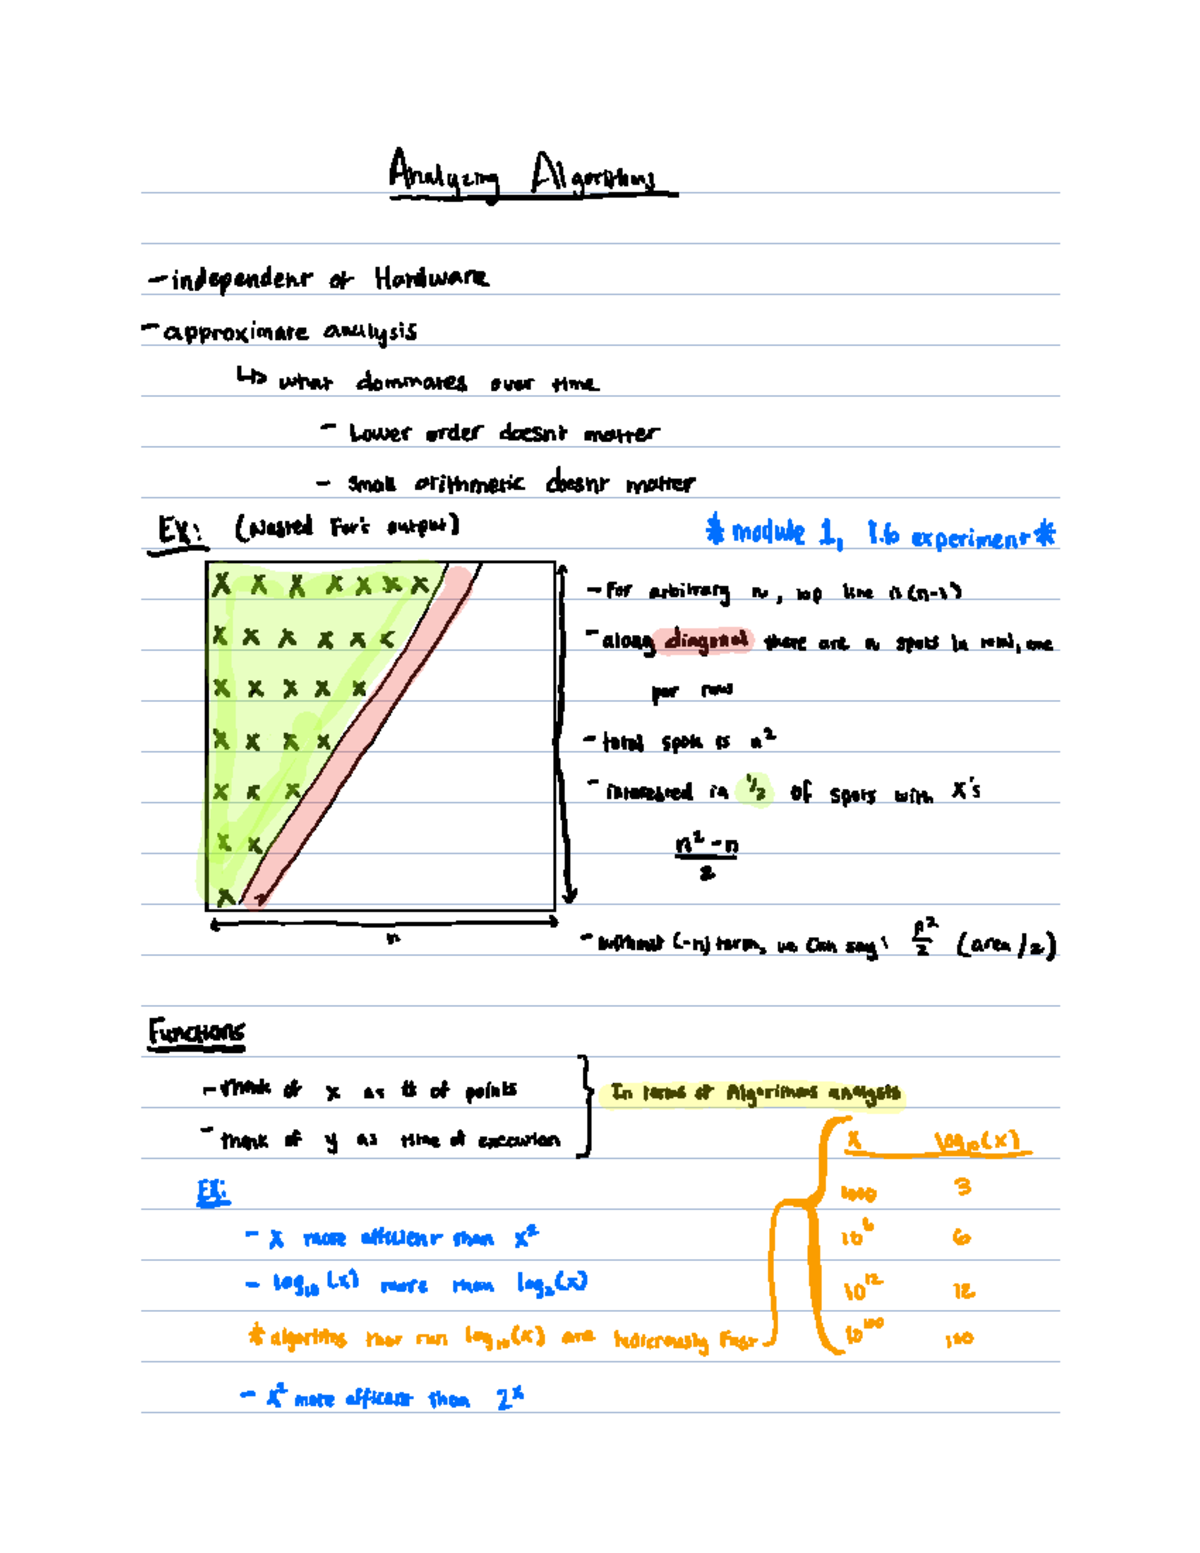 Analyzing Algorithms
- independent of Hardware
- approximate analysis
↳ what dominates over time
- Lower order doesnt matter
- small arithmetic doesnt matter
Ex: (Nested For's output)
* module 1, 1.6 experiment *
X X X X X X X
X X X X X X
X X X X X
X X X X
X X X
X X
X
n
- For arbitrary n, top line is (n-1)
- along diagonal there are n spots in total, one
per row
- total spots is n²
- interested in 1/2 of spots with X's
n² - n
2
- without (-n) term, we can say: n²/2 (area/2)
Functions
- think of x as # of points
- think of y as time of execution
In terms of Algorithms analysis
Ex:
- x more efficient than x²
- log₁₀(x) more than log₂(x)
* algorithms that run log₁₀(x) are ludicrously fast
- x² more efficient than 2ˣ
x log₁₀(x)
1000 3
10⁶ 6
10¹² 12
10¹⁰⁰ 100